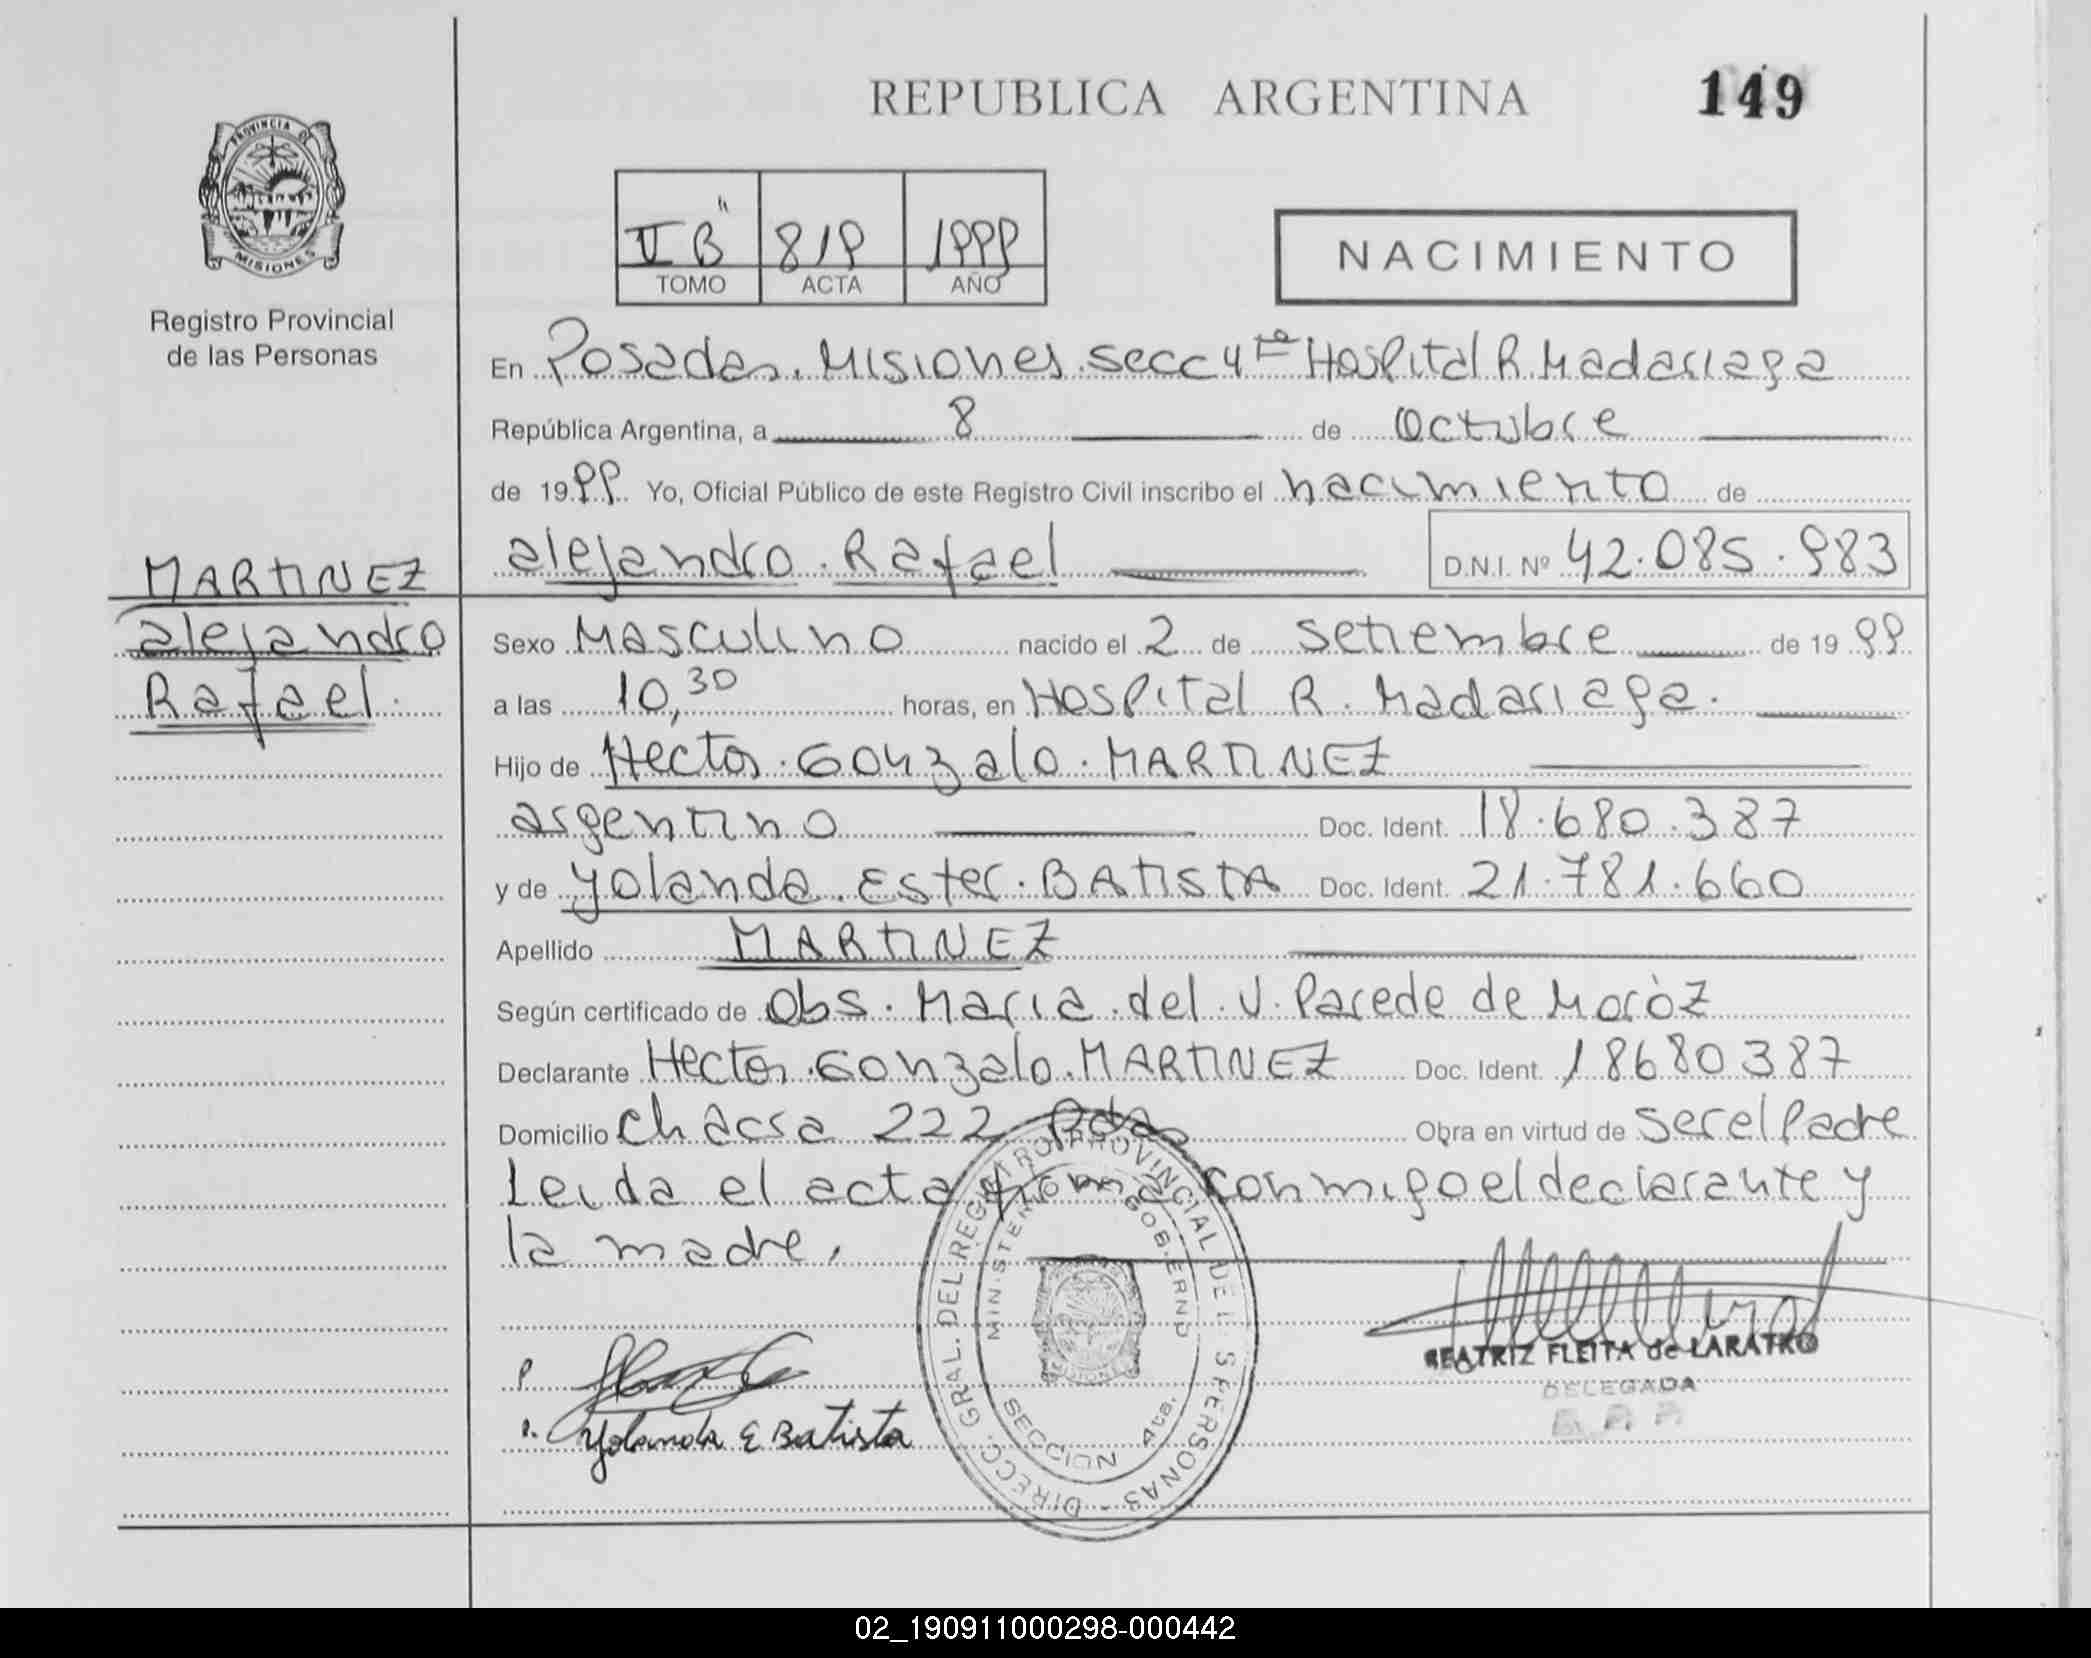 REPUBLICA ARGENTINA
149
PROVINCIA DE
MISIONES
Registro Provincial
de las Personas
II B" 819 1999
TOMO ACTA AÑO
NACIMIENTO
En Posadas. Misiones. secc 4ta Hospital R. Madariaga
República Argentina, a 8 de Octubre
de 1999 Yo, Oficial Público de este Registro Civil inscribo el nacimiento de
alejandro. Rafael D.N.I. Nº 42.085.983
MARTINEZ
alejandro
Rafael.
Sexo Masculino nacido el 2 de setiembre de 1999
a las 10,30 horas, en Hospital R. Madariaga.
Hijo de Hector. Gonzalo. MARTINEZ
argentino Doc. Ident. 18.680.387
y de Yolanda. Ester. BATISTA Doc. Ident. 21.781.660
Apellido MARTINEZ
Según certificado de Obs. Maria. del. V. Parede de Moròz
Declarante Hector. Gonzalo. MARTINEZ Doc. Ident. 18680387
Domicilio Chacra 222 Pdas Obra en virtud de ser el Padre
Leida el acta firma conmigo el declarante y
la madre.
DIRECC. GRAL. DEL REGISTRO PROVINCIAL DE LAS PERSONAS -
MINISTERIO DE GOBIERNO
SECCION 4ta.
BEATRIZ FLEITA de LARATRO
DELEGADA
Yolanda E Batista
02_190911000298-000442